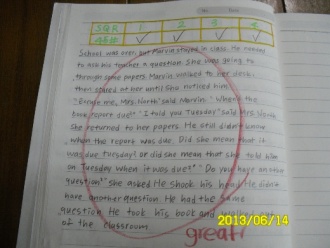 No. Date
SQR 1 2 3 4
School was over, but Marvin stayed in class. He needed
to ask his teacher a question. She was going
through some papers Marvin walked to her desk,
then stared at her until she noticed him.
"Excuse me, Mrs. North" said Marvin. "When's the
book report due?" "I told you Tuesday" said Mrs. North.
She returned to her papers. He still didn't know
when the report was due. Did she mean that it
was due tuesday? or did she mean that she told him
on Tuesday when it was due?" "Do you have another
question?" she asked He shook his head. He didn't
have another question. He had the same
question He took his book and walked out
of the classroom.
great!
2013/06/14